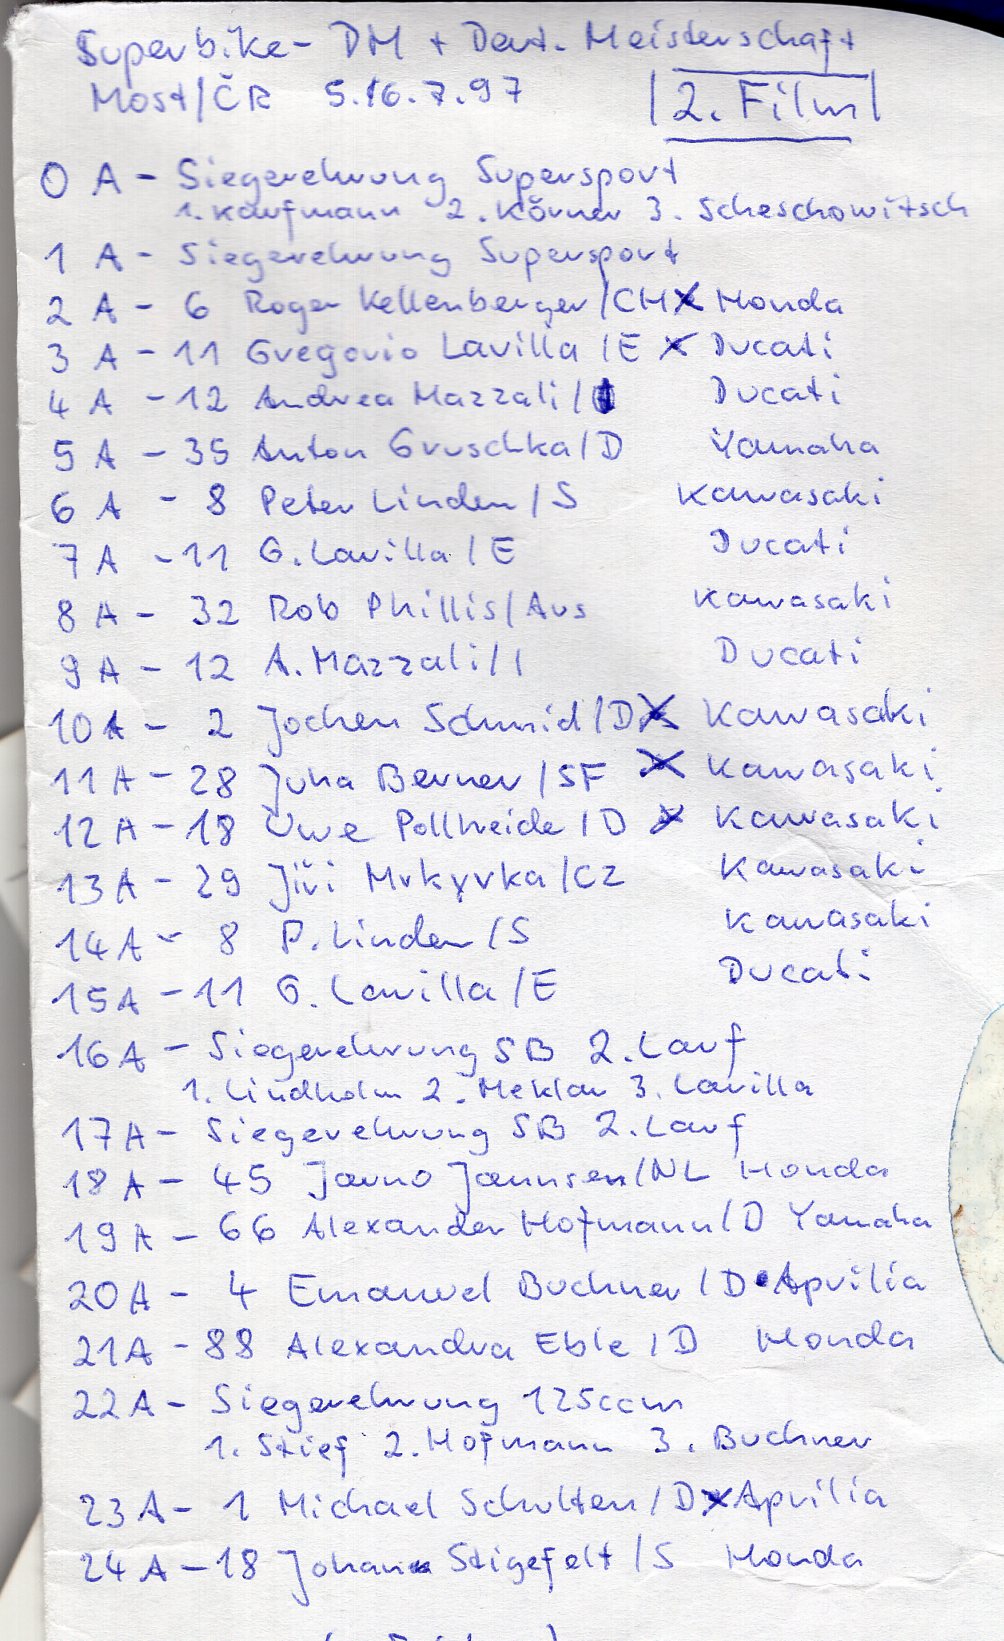 Superbike- DM + Deut. Meisterschaft
Most/ČR 5./6.7.97 |2. Film|
0 A - Siegerehrung Supersport
1. Kaufmann 2. Körner 3. Scheschowitsch
1 A - Siegerehrung Supersport
2 A - 6 Roger Kellenberger/CH x Honda
3 A - 11 Gregorio Lavilla /E x Ducati
4 A - 12 Andrea Mazzali/I Ducati
5 A - 35 Anton Gruschka/D Yamaha
6 A - 8 Peter Linden/S Kawasaki
7 A - 11 G. Lavilla/E Ducati
8 A - 32 Rob Phillis/Aus Kawasaki
9 A - 12 A. Mazzali/I Ducati
10 A - 2 Jochen Schmid/D x Kawasaki
11 A - 28 Juha Berner/SF x Kawasaki
12 A - 18 Uwe Pollheide/D x Kawasaki
13 A - 29 Jiři Mrkyvka/CZ Kawasaki
14 A - 8 P. Linden/S Kawasaki
15 A - 11 G. Lavilla/E Ducati
16 A - Siegerehrung SB 2. Lauf
1. Lindholm 2. Meklau 3. Lavilla
17 A - Siegerehrung SB 2. Lauf
18 A - 45 Jarno Jannsen/NL Honda
19 A - 66 Alexander Hofmann/D Yamaha
20 A - 4 Emanuel Buchner/D Aprilia
21 A - 88 Alexandra Eble/D Honda
22 A - Siegerehrung 125ccm
1. Stief 2. Hofmann 3. Buchner
23 A - 1 Michael Schulten/D x Aprilia
24 A - 18 Johan Stigefelt/S Honda